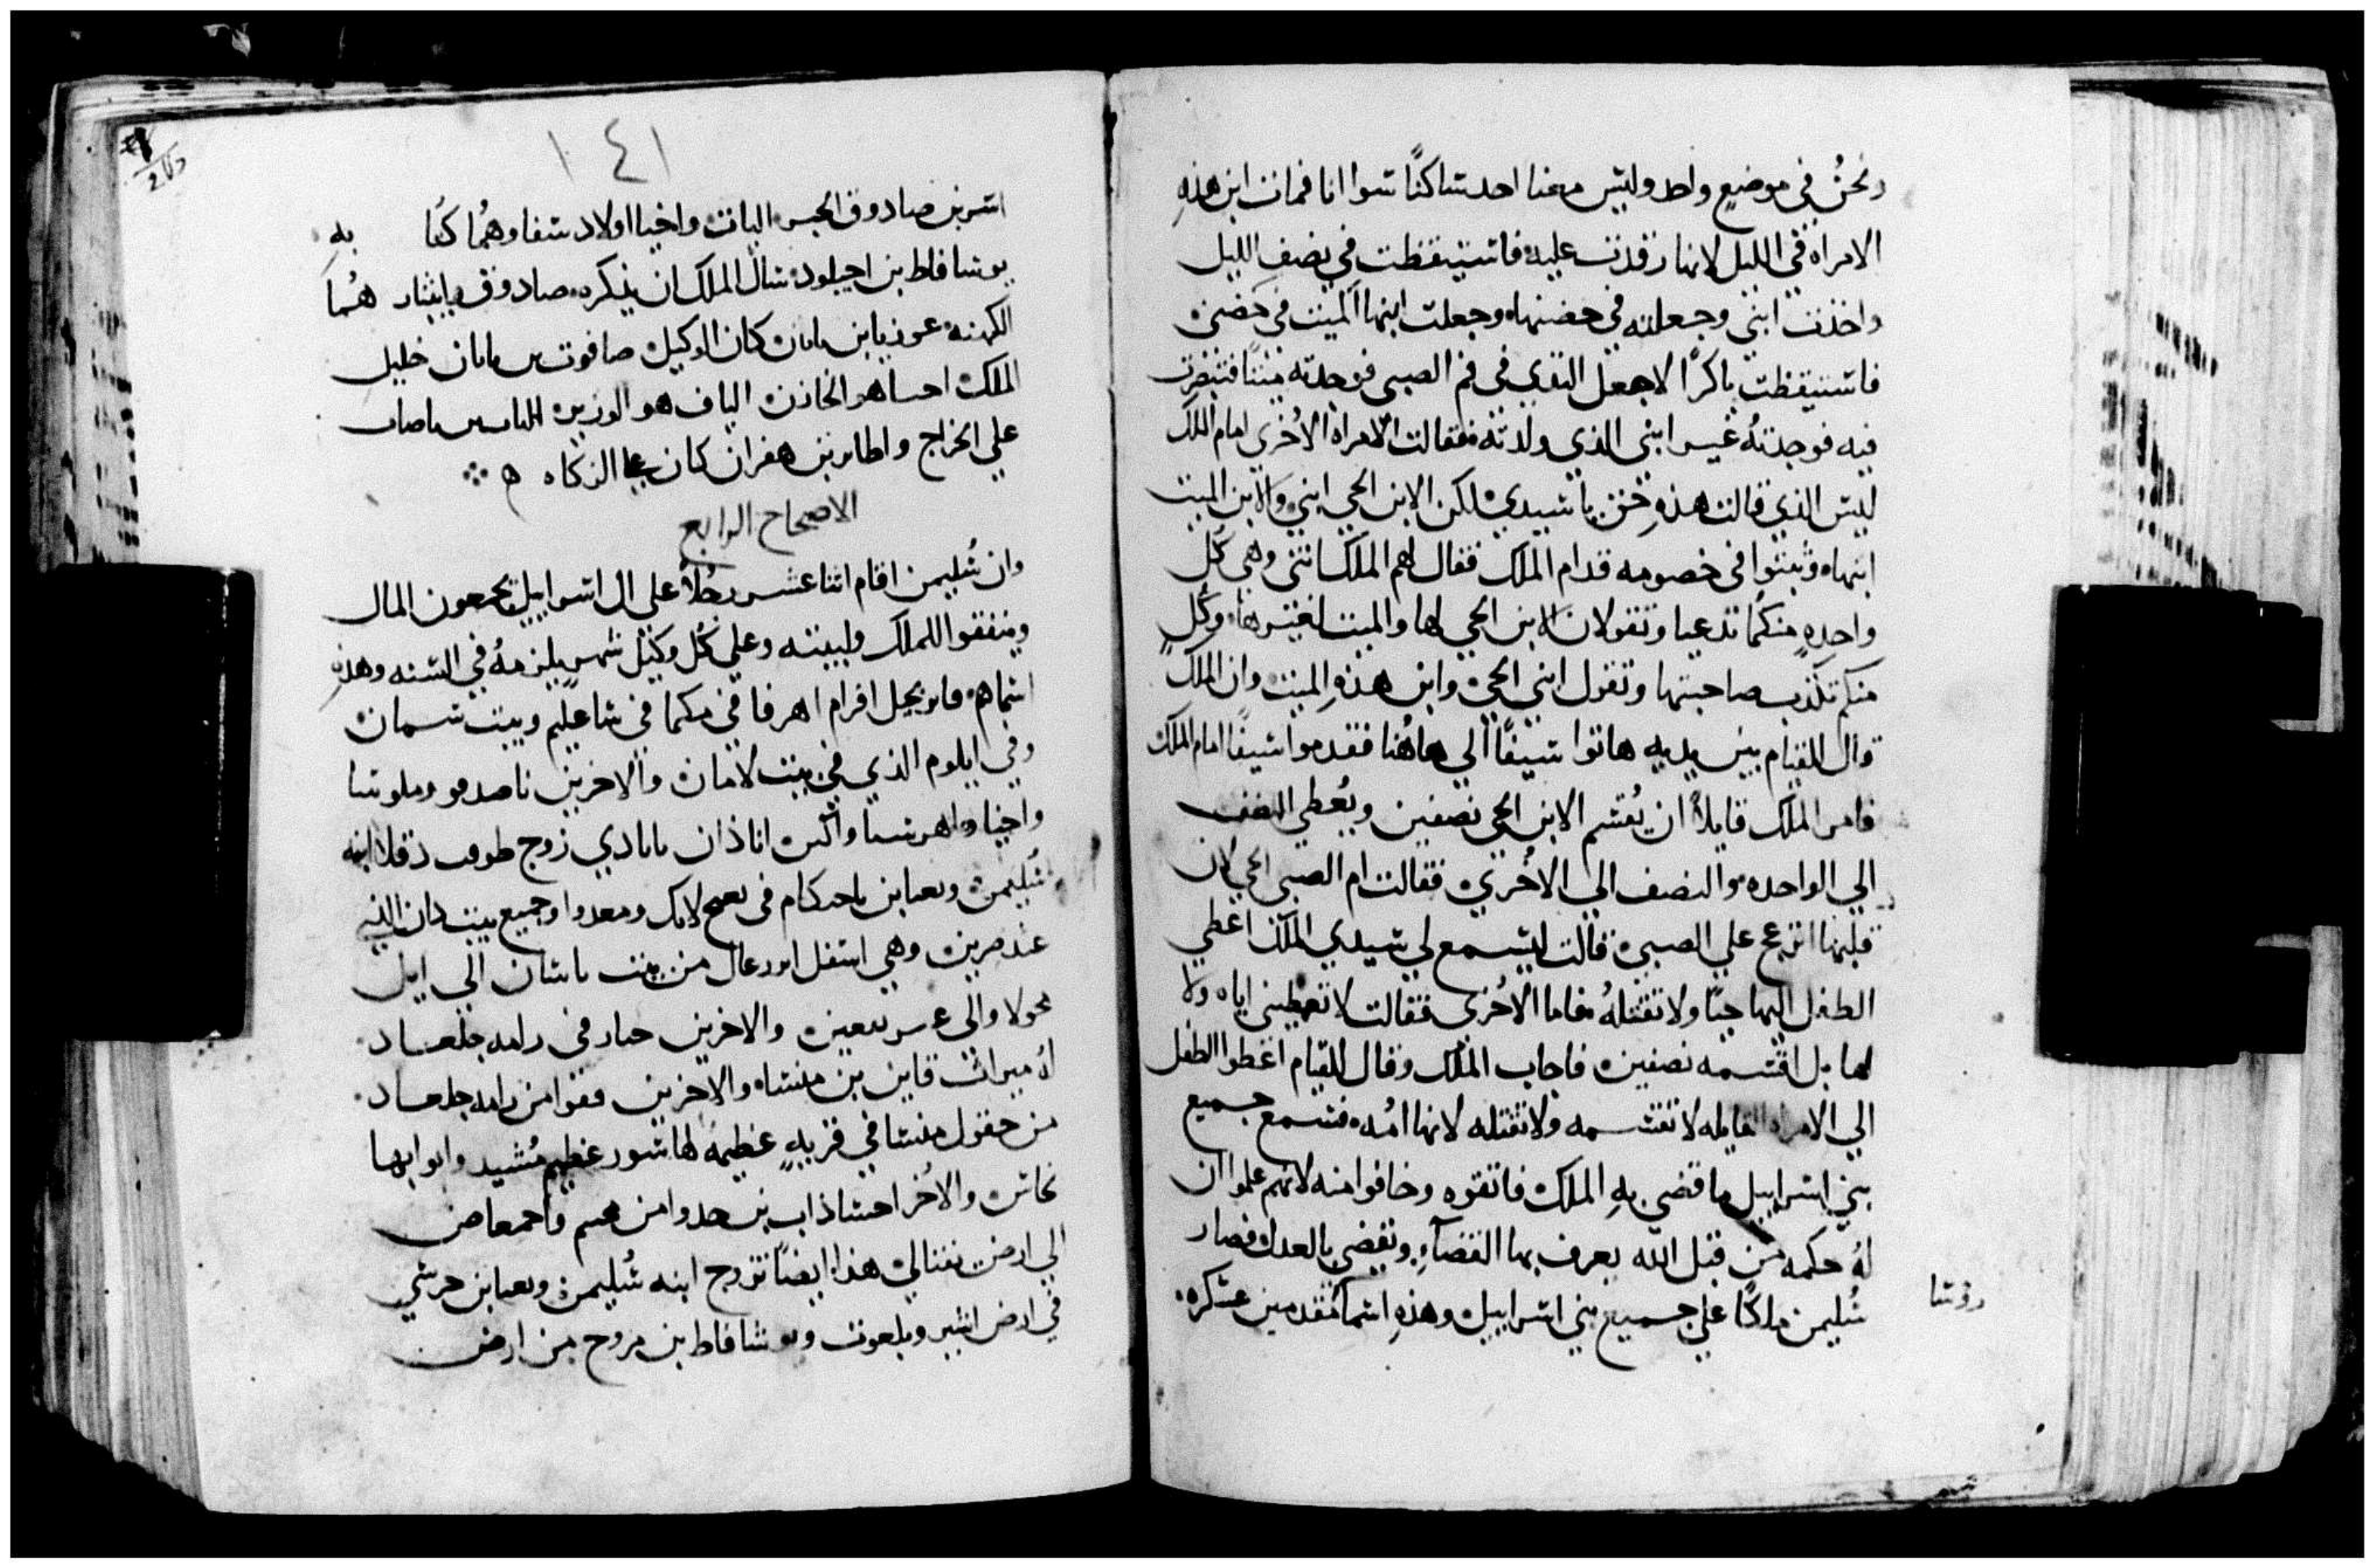 ونحنُ في موضعٍ واحد وليس معنا احد ساكنًا سوا انا فمات ابن هذهِ
الامراه في الليل لانها رقدت عليه فاستيقظت في نصف الليل
واخذت ابني وجعلته في حضنها وجعلت ابنها الميت في حضني
فاستيقظت باكرًا لاجعل الثدي في فم الصبي فوجدته ميتًا فتبصرت
فيه فوجدتهُ غير ابني الذي ولدته فقالت الامراة الاُخري امام الملك
ليس الذي قالت هذهِ حق يا سيدي لكن الابن الحي ابني والابن الميت
ابنها وثبتوا في خصومه قدام الملك فقال لهم الملك انتي وهي كُل
واحدهٍ منكما تدعيا وتقولان الابن الحي لها والميت لغيرها وكُل
منكم تكذب صاحبتها وتقول ابني الحي وابن هذهِ الميت وان الملك
قال للقيام بين يديه هاتوا سيفًا الي هاهُنا فقدموا سيفًا امام الملك
فامر الملك قايلاً ان يُقسم الابن الحي نصفين ويُعطي النصف
الي الواحده والنصف الي الاُخري فقالت ام الصبي الحي لان
قلبها انزعج علي الصبي قالت ليسمع لي سيدي الملك اعطي
الطفل اليها حيًا ولا تقتلهُ فاما الاُخري فقالت لا تعطيني اياه ولا
لها بل اقسمه نصفين فاجاب الملك وقال للقيام اعطوا الطفل
الي الامراه القايله لا تقسمه ولا تقتله لانها اُمه فسمع جميع
بني اسراييل ما قضي بهِ الملك فاتقوه وخافوا منه لانهم علموا ان
لهُ حكمه من قبل الله يعرف بها القضآءِ ويقضي بالعدل فصار
سُليمن ملكًا علي جميع بني اسراييل وهذهِ اسما مُقدمين عسكره
روسا
١٤١
بن صادوق الحبر واخيا اولاد سفا وهُما كُتا به
يوسافاط بن احيلود سال الملك ان يذكره صادوق وابيثار هُما
الكهنه عوزيا بن ناتان كان الوكيل صافوت بن ناتان خليل
الملك احسا هو الخازن الياف هو الوزير
علي الخراج بن هفران كان علي الزكاه
الاصحاح الرابع
وان سُليمن اقام اثنا عشر رجُلاً علي ال اسراييل يجمعون المال
وينفقوا للملك ولبيته وعلي كُل وكيل شهرٍ يلزمهُ في السنه وهذهِ
اسماهم افرام في مكما في شاعليم وبيت سمان
وفي ايلوم الذي في بيت لامان والاخرين
واخيا زوج طوف دقلا ابنه
سُليمن وجميع بيت دان الذي
عند صرين وهي اسفل من بيت باشان الي ابل
محولا والي والاخرين في رامه جلعاد
لهُ ميراث قاين بن منشاه والاخرين من رامه جلعاد
من حقول منسا في قريهٍ عظيمة لها سور عظيم مُشيد وابوابها
نحاس والاخُر احشاذاب بن
الي ارض نفتالي هذا ايضًا تزوج ابنه سُليمن وبعنا بن حرشي
في ارض اشير وبلعوت ويوشافاط بن مروح من ارض